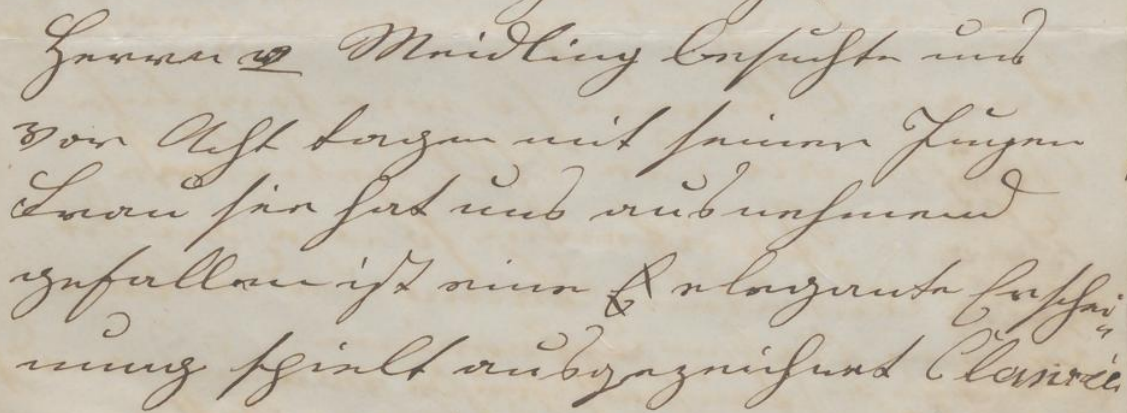 Herrn v Meidling besuchte uns
vor Acht tagen mit seiner Jungen
Frau sie hat uns ausnehmend
gefallen ist eine elegante Erschei-
nung spielt ausgezeichnet Clavier